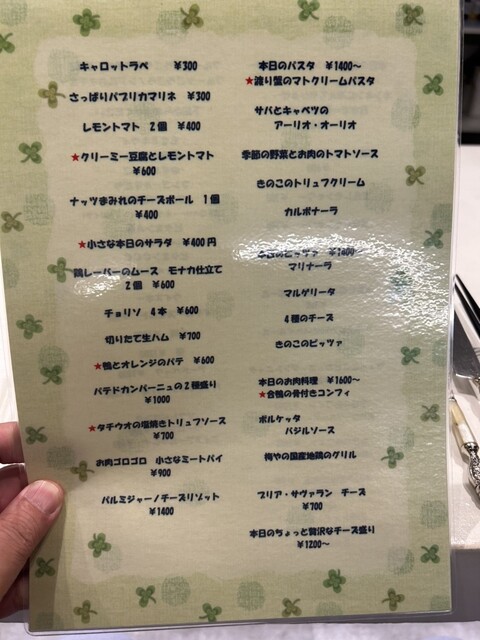 キャロットラペ ¥300
さっぱりパプリカマリネ ¥300
レモントマト 2個 ¥400
★クリーミー豆腐とレモントマト
¥600
ナッツまみれのチーズボール 1個
¥400
★小さな本日のサラダ ¥400円
鶏レーバーのムース モナカ仕立て
2個 ¥600
チョリソ 4本 ¥600
切りたて生ハム ¥700
★鴨とオレンジのパテ ¥600
パテドカンパーニュの2種盛り
¥1000
★タチウオの塩焼きトリュフソース
¥700
お肉ゴロゴロ 小さなミートパイ
¥900
パルミジャーノチーズリゾット
¥1400
本日のパスタ ¥1400~
★渡り蟹のマトクリームパスタ
サバとキャベツの
アーリオ・オーリオ
季節の野菜とお肉のトマトソース
きのこのトリュフクリーム
カルボナーラ
本日のピッツァ ¥1600
マリナーラ
マルゲリータ
4種のチーズ
きのこのピッツァ
本日のお肉料理 ¥1600~
★合鴨の骨付きコンフィ
ポルケッタ
バジルソース
梅やの国産地鶏のグリル
ブリア・サヴァラン チーズ
¥700
本日のちょっと贅沢なチーズ盛り
¥1200~